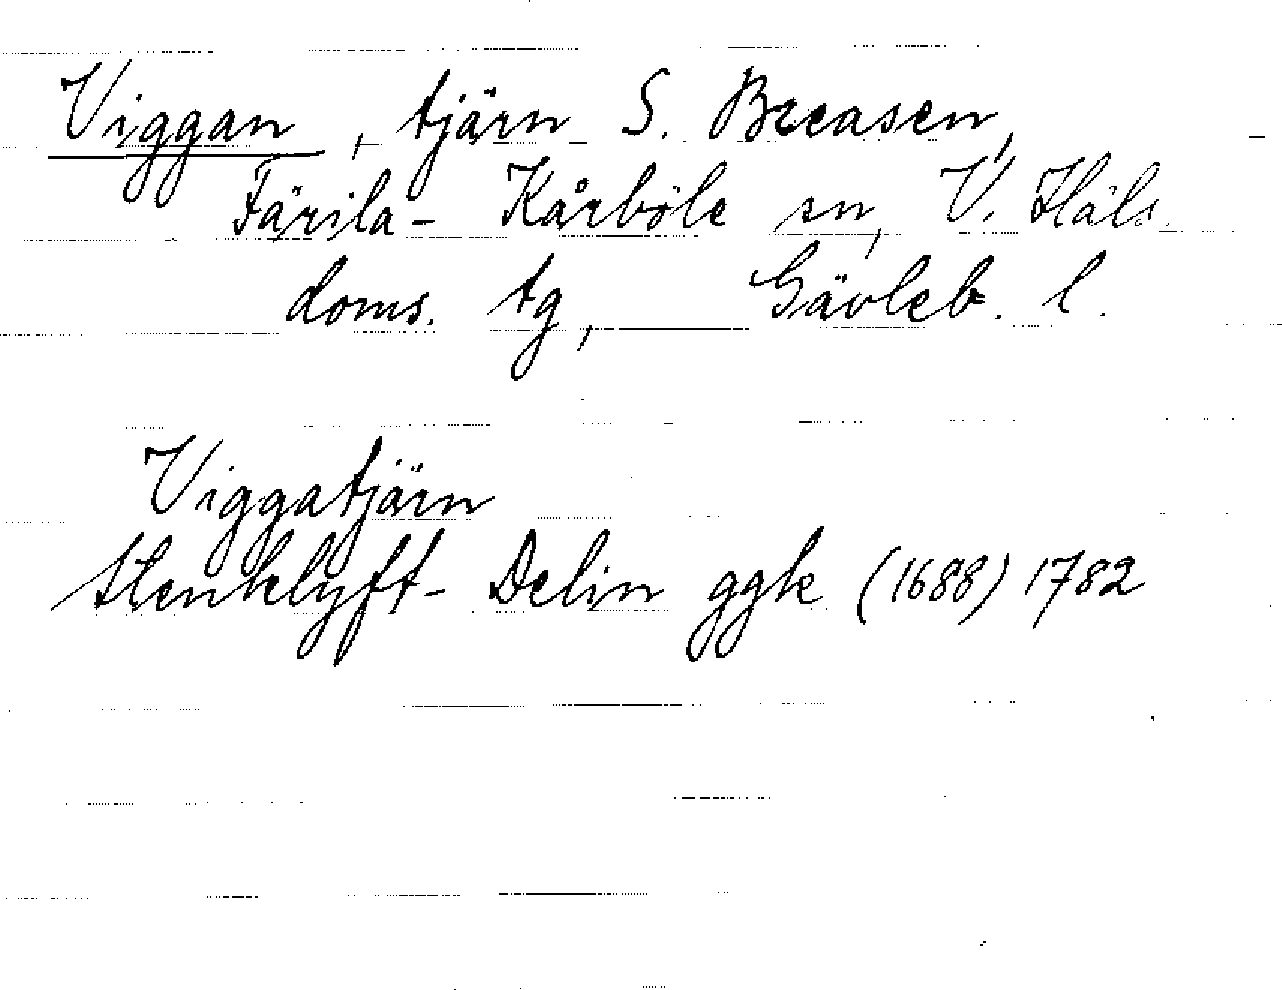 Viggan, tjärn S. Breasen,
Färila-Kårböle sn, V. Häls.
doms. tg, Gävleb. l.
Viggatjärn
Stenklyft- Delin ggk (1688) 1782